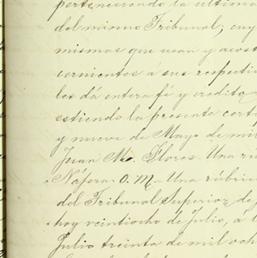 perteneciendo la ultima
del mismo Tribunal, cuy
mismos que usan y acost
cernientes á sus respecti
les dá entera fé y credito
estiendo la presente cert
y nueve de Mayo de mil
Juan M. Flores. Una rú
Nájera O. M. Una rúbric
del Tribunal Superior de j
hoy veintiocho de Julio, á l
Julio treinta de mil och